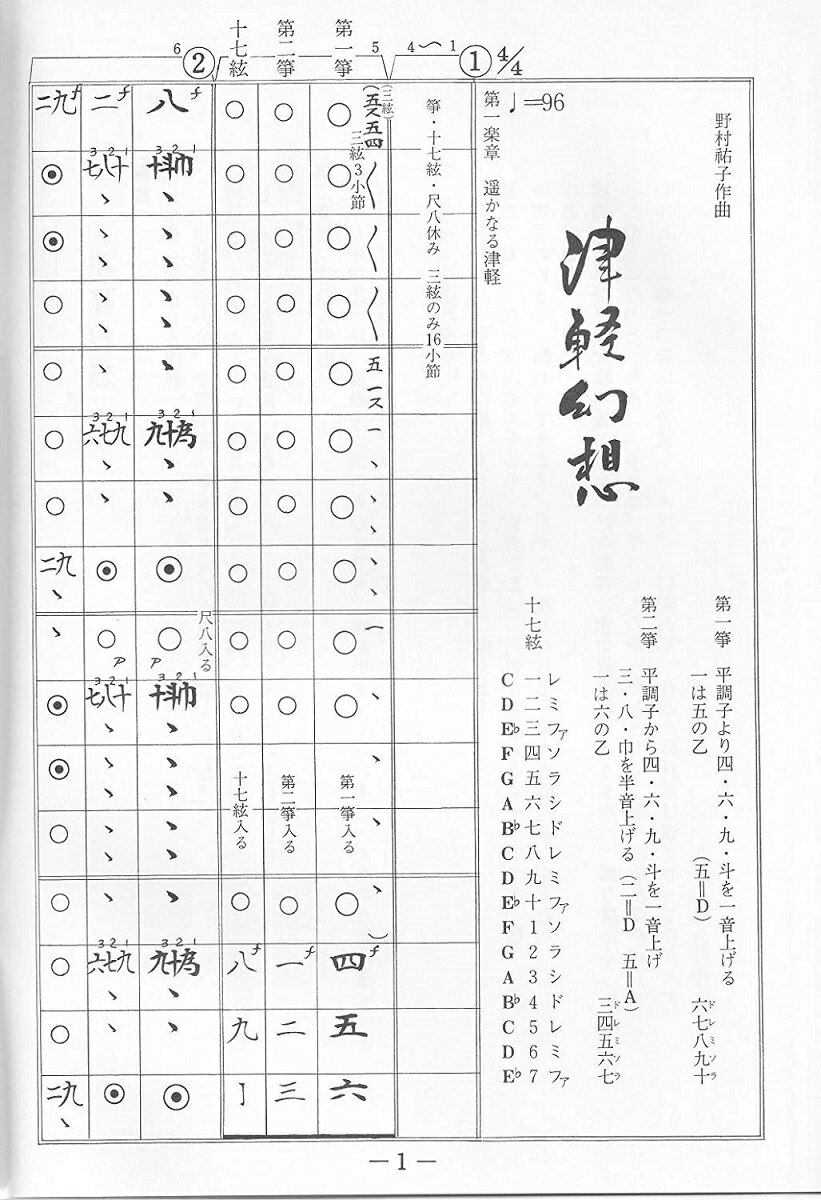 野村祐子作曲
津軽幻想
第一箏 平調子より四・六・九・斗を一音上げる
一は五の乙 (五=D)
六七八九十
ドレミソラ
第二箏 平調子から四・六・九・斗を一音上げ
三・八・巾を半音上げる (二=D 五=A)
一は六の乙
三四五六七
ドレミソラ
十七絃
C 一 レ
D 二 ミ
E♭ 三 ファ
F 四 ソ
G 五 ラ
A 六 シ
B♭ 七 ド
C 八 レ
D 九 ミ
E♭ 十 ファ
F 1 ソ
G 2 ラ
A 3 シ
B♭ 4 ド
C 5 レ
D 6 ミ
E♭ 7 ファ
4/4
♩=96
第一楽章 遥かなる津軽
① 1〜4
箏・十七絃・尺八休み 三絃のみ16小節
5
(三絃)
三絃3小節
第一箏
第一箏入る
f
四 五 六
第二箏
第二箏入る
f
一 二 三
十七絃
十七絃入る
f
八 九
② 6
f
八
3 2 1
十斗巾
3 2 1
九十為
尺八入る
P
3 2 1
十斗巾
3 2 1
九十為
f
二
3 2 1
七八十
3 2 1
六七九
P
3 2 1
七八十
3 2 1
六七九
f
二九
二九
二九
—1—